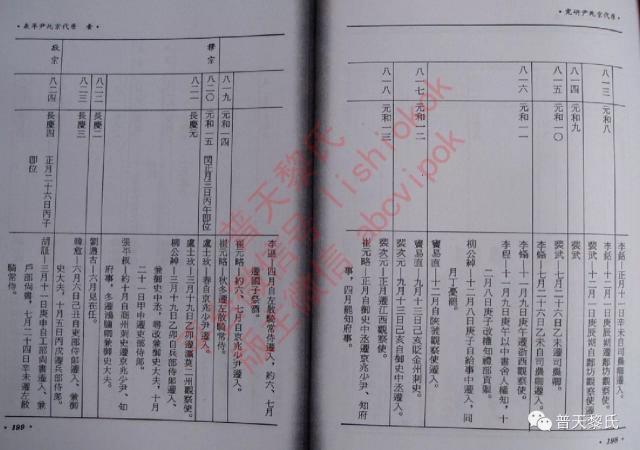 •唐代京兆尹研究•
八一三 元和八
李銛—正月十一日庚
裴武—十二月
八一四 元和九
裴武
八一五 元和一〇
裴武—七月二十六日乙未遷司農卿。
李翛—七月二十六日乙未自司農卿遷入。
八一六 元和一一
李翛—十一月九日庚午遷浙西觀察使。
李程—十一月九日庚午以中書舍人權知，十
二月八日庚子改權知禮部貢舉。
柳公綽—十二月八日庚子自給事中遷入，同
月，憂罷。
八一七 元和一二
竇易直—十二月自陝虢觀察使遷入。
竇易直—九月十三日己亥貶金州刺史。
裴次元—九月十三日己亥自御史中丞遷入。
八一八 元和一三
裴次元—正月遷江西觀察使。
崔元略—正月自御史中丞遷京兆少尹、知府
事，四月罷知府事。
•198•
八一九 元和一四
李
遷國子祭酒。
崔元略—約六、七月自京兆少尹遷入。
穆宗
八二〇 元和一五 閏正月三日丙午即位
崔元略—秋冬遷左散騎常侍。
盧士玫—春自京兆少尹遷入。
八二一 長慶元
盧士玫—三月十九日乙卯遷瀛莫二州觀察使。
柳公綽—三月十九日乙卯自兵部侍郎遷入，
兼御史中丞、尋兼御史大夫，十月
二十一日甲申遷吏部侍郎。
張平叔—約十月自商州刺史遷京兆少尹、知
府事，冬遷鴻臚卿兼御史大夫。
八二二 長慶二
劉遵古—六月見在任。
八二三 長慶三
韓愈—六月六日己丑自吏部侍郎遷入，兼御
史大夫，十月五日丙戌遷兵部侍郎。
敬宗
八二四 長慶四 正月二十六日丙子
即位
戶部尚書，七月二十四日辛未遷左散
騎常侍。
•199•
普天黎氏
微信号 lishiobok
版主微信 abcvipok
普天黎氏